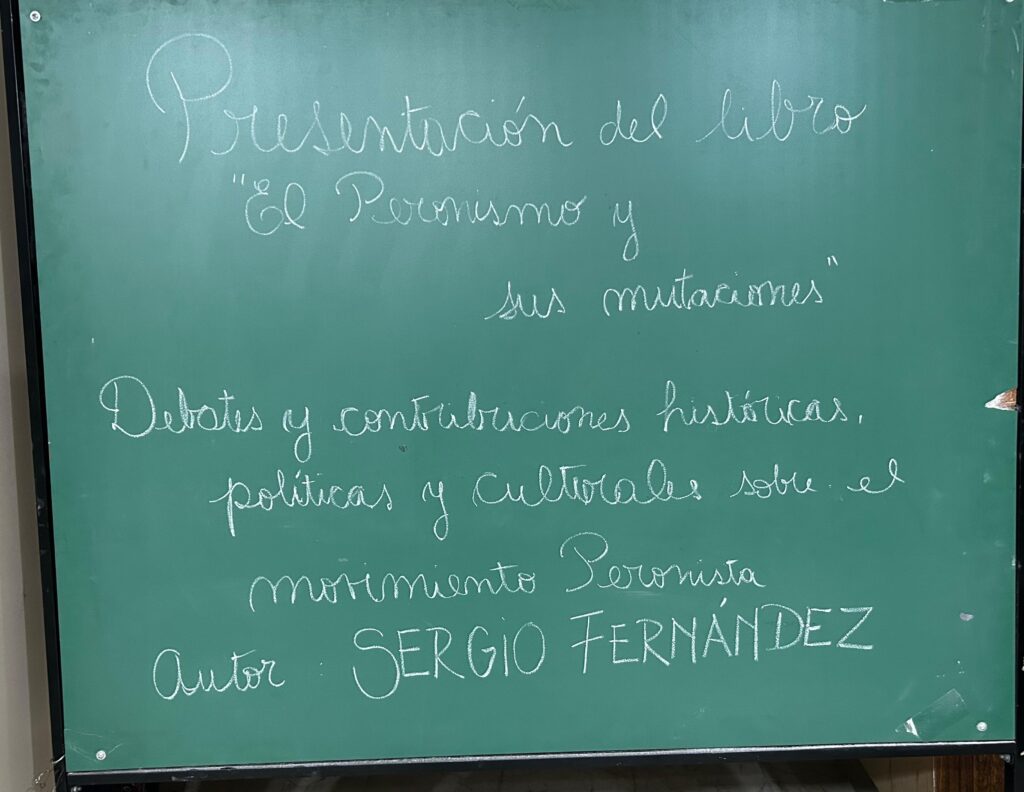 Presentación del libro
"El Peronismo y
sus mutaciones"
Debates y contribuciones históricas,
políticas y culturales sobre el
movimiento Peronista
Autor: SERGIO FERNÁNDEZ